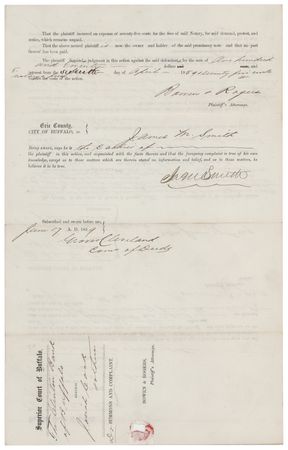 That the plaintiff incurred an expense of seventy-five cents for the fees of said Notary, for said demand, protest, and
notice, which remains unpaid.
That the above named plaintiff is now the owner and holder of the said promissory note and that no part
thereof has been paid.
The plaintiff demands judgment in this action against the said defendants for the sum of One hundred
and twenty dollars and cents,
interest from the seventh day of April 185 & Seventy five cents
costs of the action.
Bowen & Rogers
Plaintiff's Attorneys.
Erie County,
CITY OF BUFFALO, ss:
James M. Smith
Being sworn, says he is the Cashier of
the plaintiff in this action, and acquainted with the facts therein and that the foregoing complaint is true of his own
knowledge, except as to those matters which are therein stated on information and belief, and as to those matters, he
believes it to be true.
Smith
Subscribed and sworn before me,
June 7 A. D. 1859
Grover Cleveland
Com of Deeds
Superior Court of Buffalo.
Clinton Bank
of Buffalo
AGAINST
David
SUMMONS AND COMPLAINT.
BOWEN & ROGERS,
Plaintiff's Attorneys.